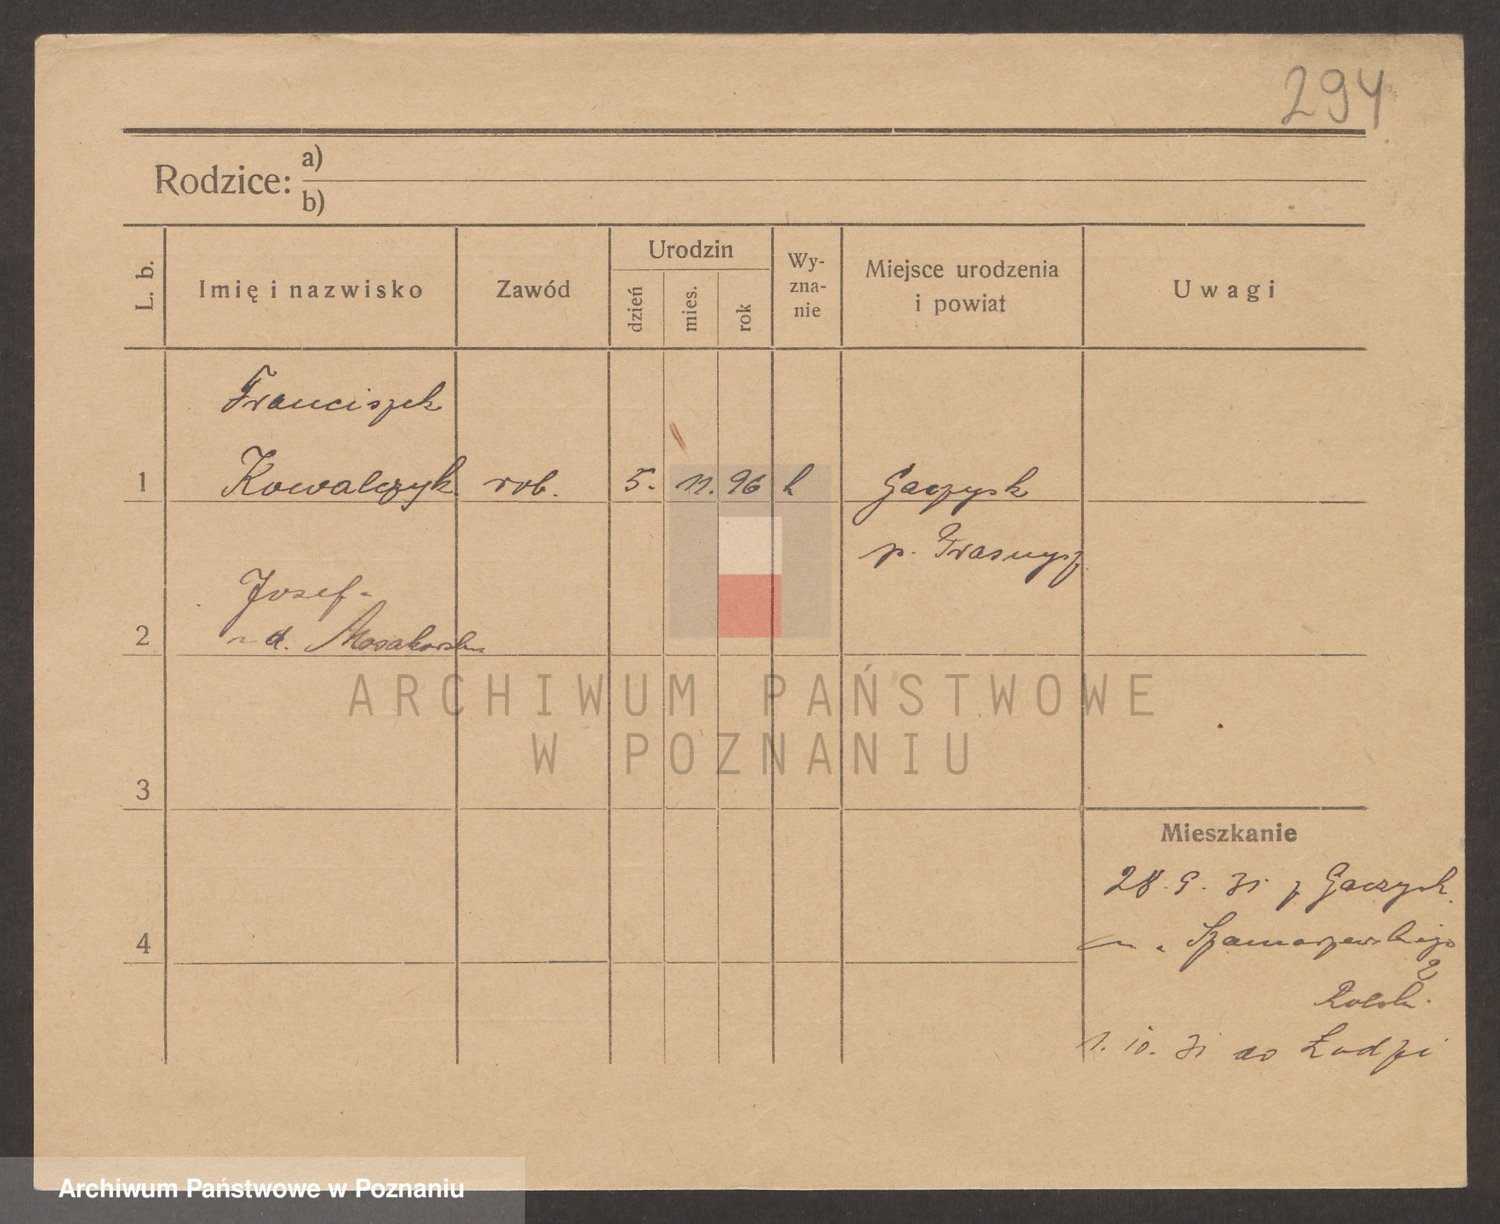 294
Rodzice:
a)
b)
L. b.
Imię i nazwisko
Zawód
Urodzin
dzień
mies.
rok
Wy-
zna-
nie
Miejsce urodzenia
i powiat
Uwagi
Franciszek
1 Kowalczyk rob. 5. 11. 96 k Gaczysk
p.
Josef
2 Mosakowska
3
4
Mieszkanie
28. 9. 31 z Gaczysk
Szamarzewskiego
2
1. 10. 31 do Łodzi
ARCHIWUM PAŃSTWOWE
W POZNANIU
Archiwum Państwowe w Poznaniu